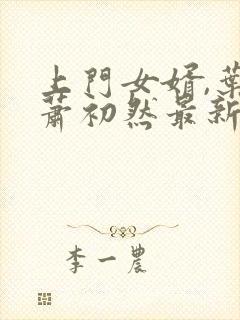 上門女婿,葉
蕭初然最新
李一農